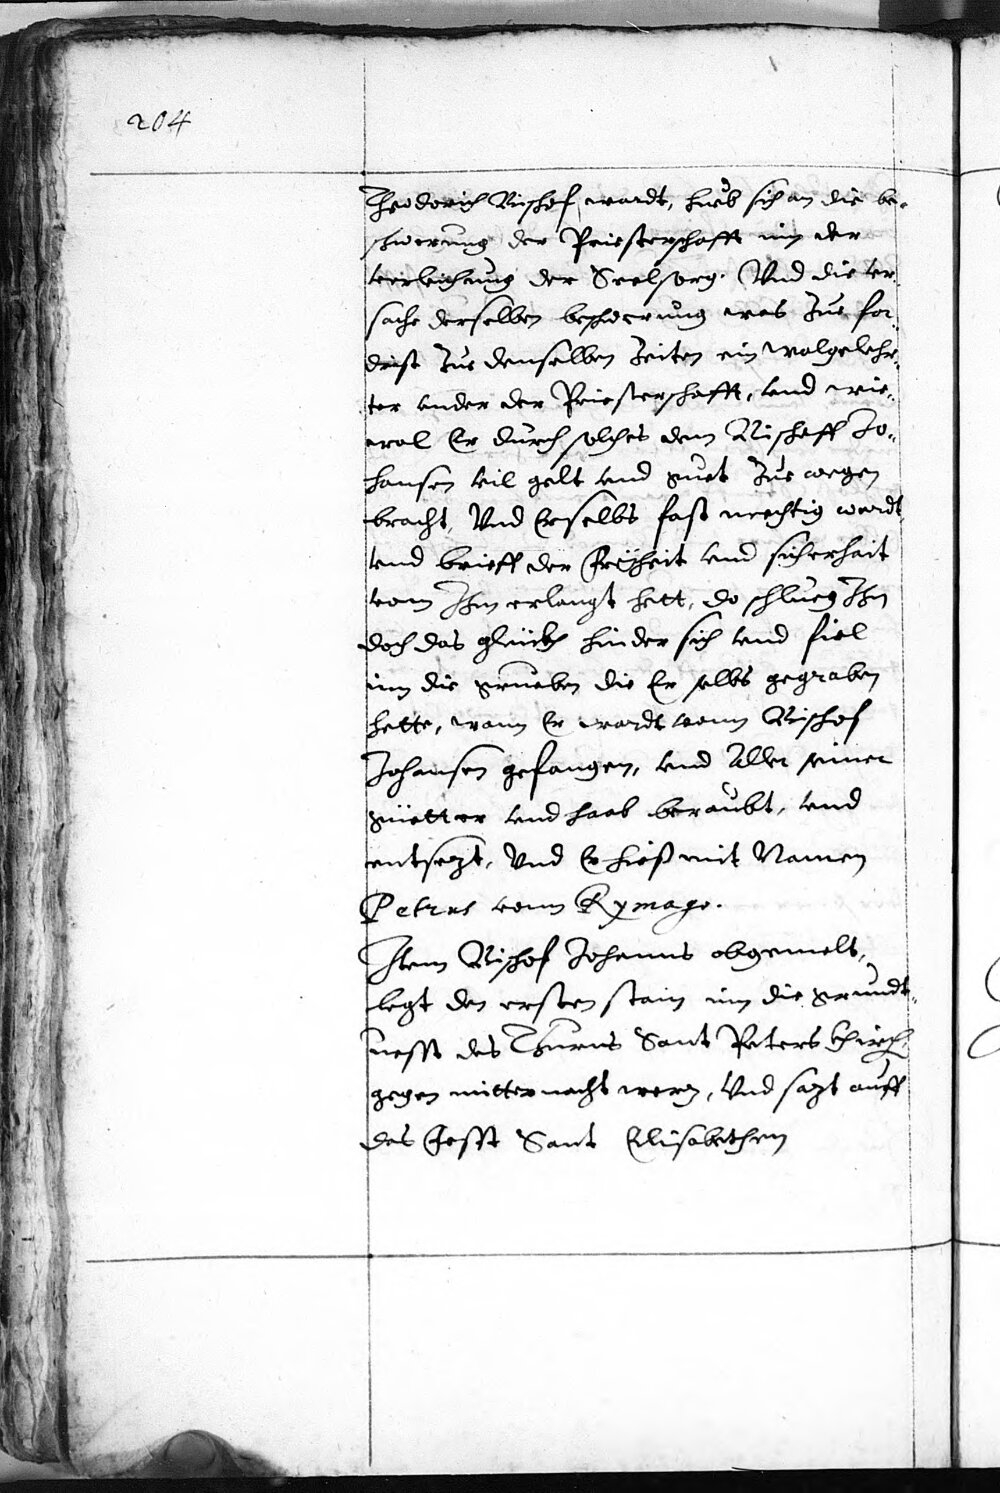 204
Theodorich Bischof wardt, hueb sich an die be-
schwerung der Priesterschafft inn der
verleichung der Seelsorg. Und die ur-
sache derselben beschwerung was Zue for-
drist Zue denselben Zeiten ein wolgelehr-
ter under der Priesterschafft, und wie-
wol Er durch solches dem Bischoff Jo-
hansen vil gelt und guet Zue wegen
bracht, Und Erselbs fast mechtig wardt,
und brieff der Freyheit und sicherheit
vom Ihm erlangt hett, do schlueg Ihn
doch das glückh hinder sich und fiel
inn die grueben die Er selbs gegraben
hette, wann Er wardt vonn Bischof
Johansen gefangen, und Aller seiner
güetter und haab beraubt, und
entsezt, Und Er hieß mit Namen
Petrus vonn Rymago.
Item Bischof Johanns obgemelt,
legt den ersten stain inn die grundt-
vesst des Thurns Sant Peters Khirch
gegen mitternacht werz, Und sazt auff
das Fesst Sant Elisabethen